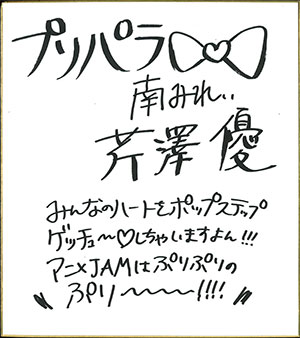 プリパラ
南みれぃ
芹澤優
みんなのハートをポップステップ
ゲッチュ〜♡しちゃいますよん!!!
アニメJAMはぷりぷりの
"ぷり〜〜〜!!!!"